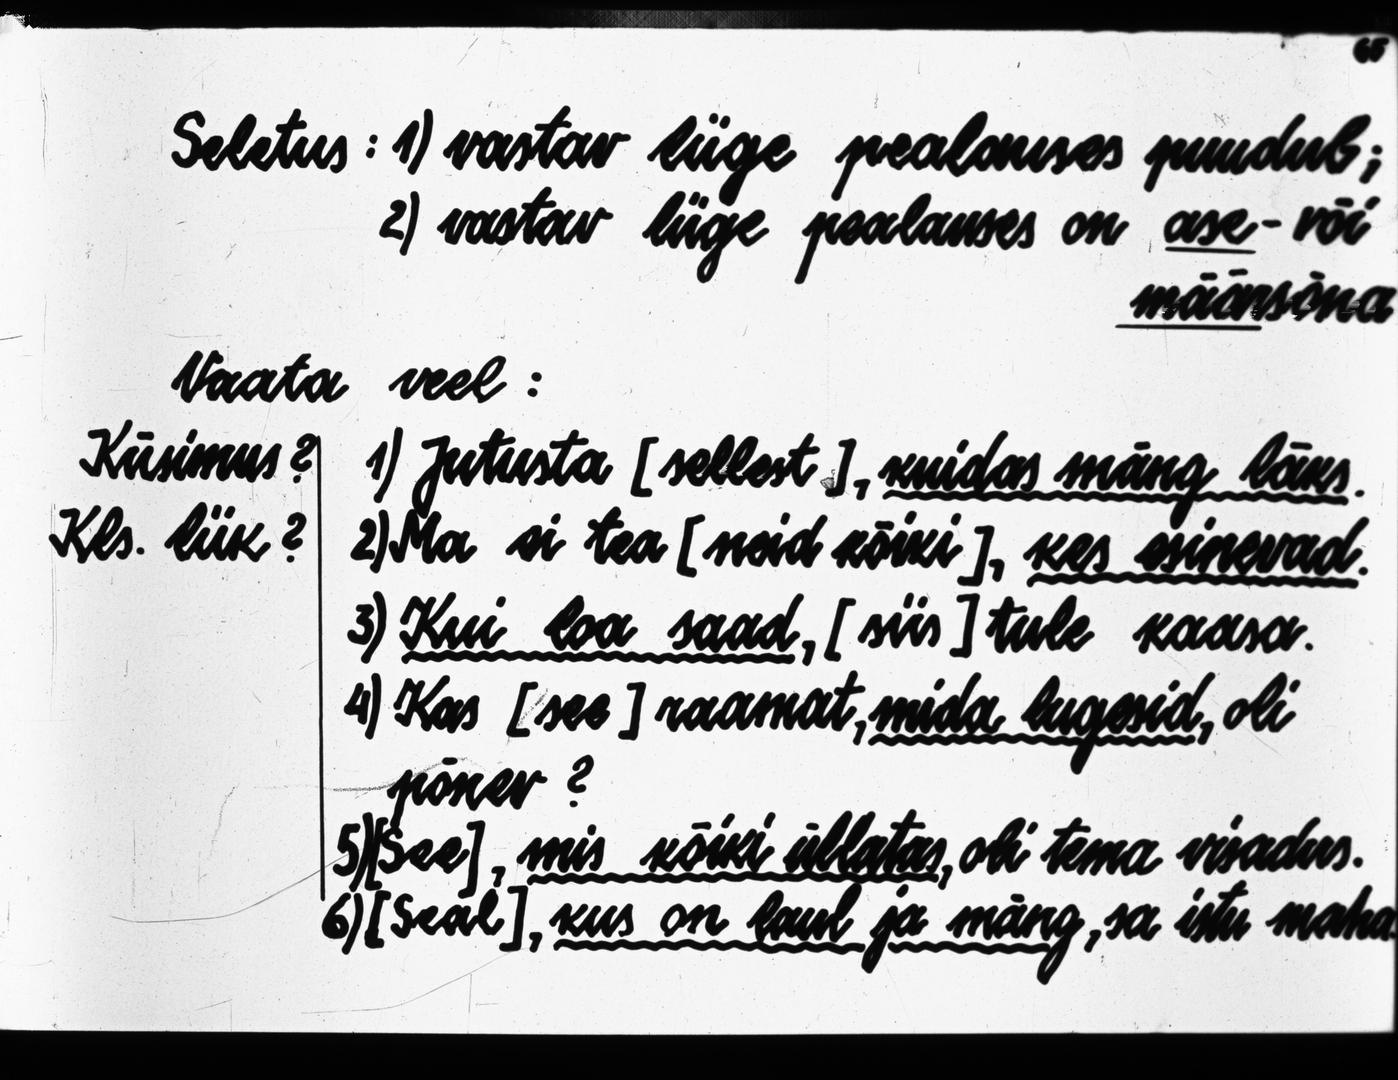 65
Seletus: 1) vastav liige pealauses puudub;
2) vastav liige pealauses on ase- või
määrsõna
Vaata veel:
Küsimus? 1) Jutusta [sellest], kuidas mäng läks.
Kls. liik? 2) Ma ei tea [neid kõiki], kes esinevad.
3) Kui loa saad, [siis] tule kaasa.
4) Kas [see] raamat, mida lugesid, oli
põnev?
5) [See], mis kõiki üllatas, oli tema visadus.
6) [Seal], kus on laul ja mäng, sa istu maha.